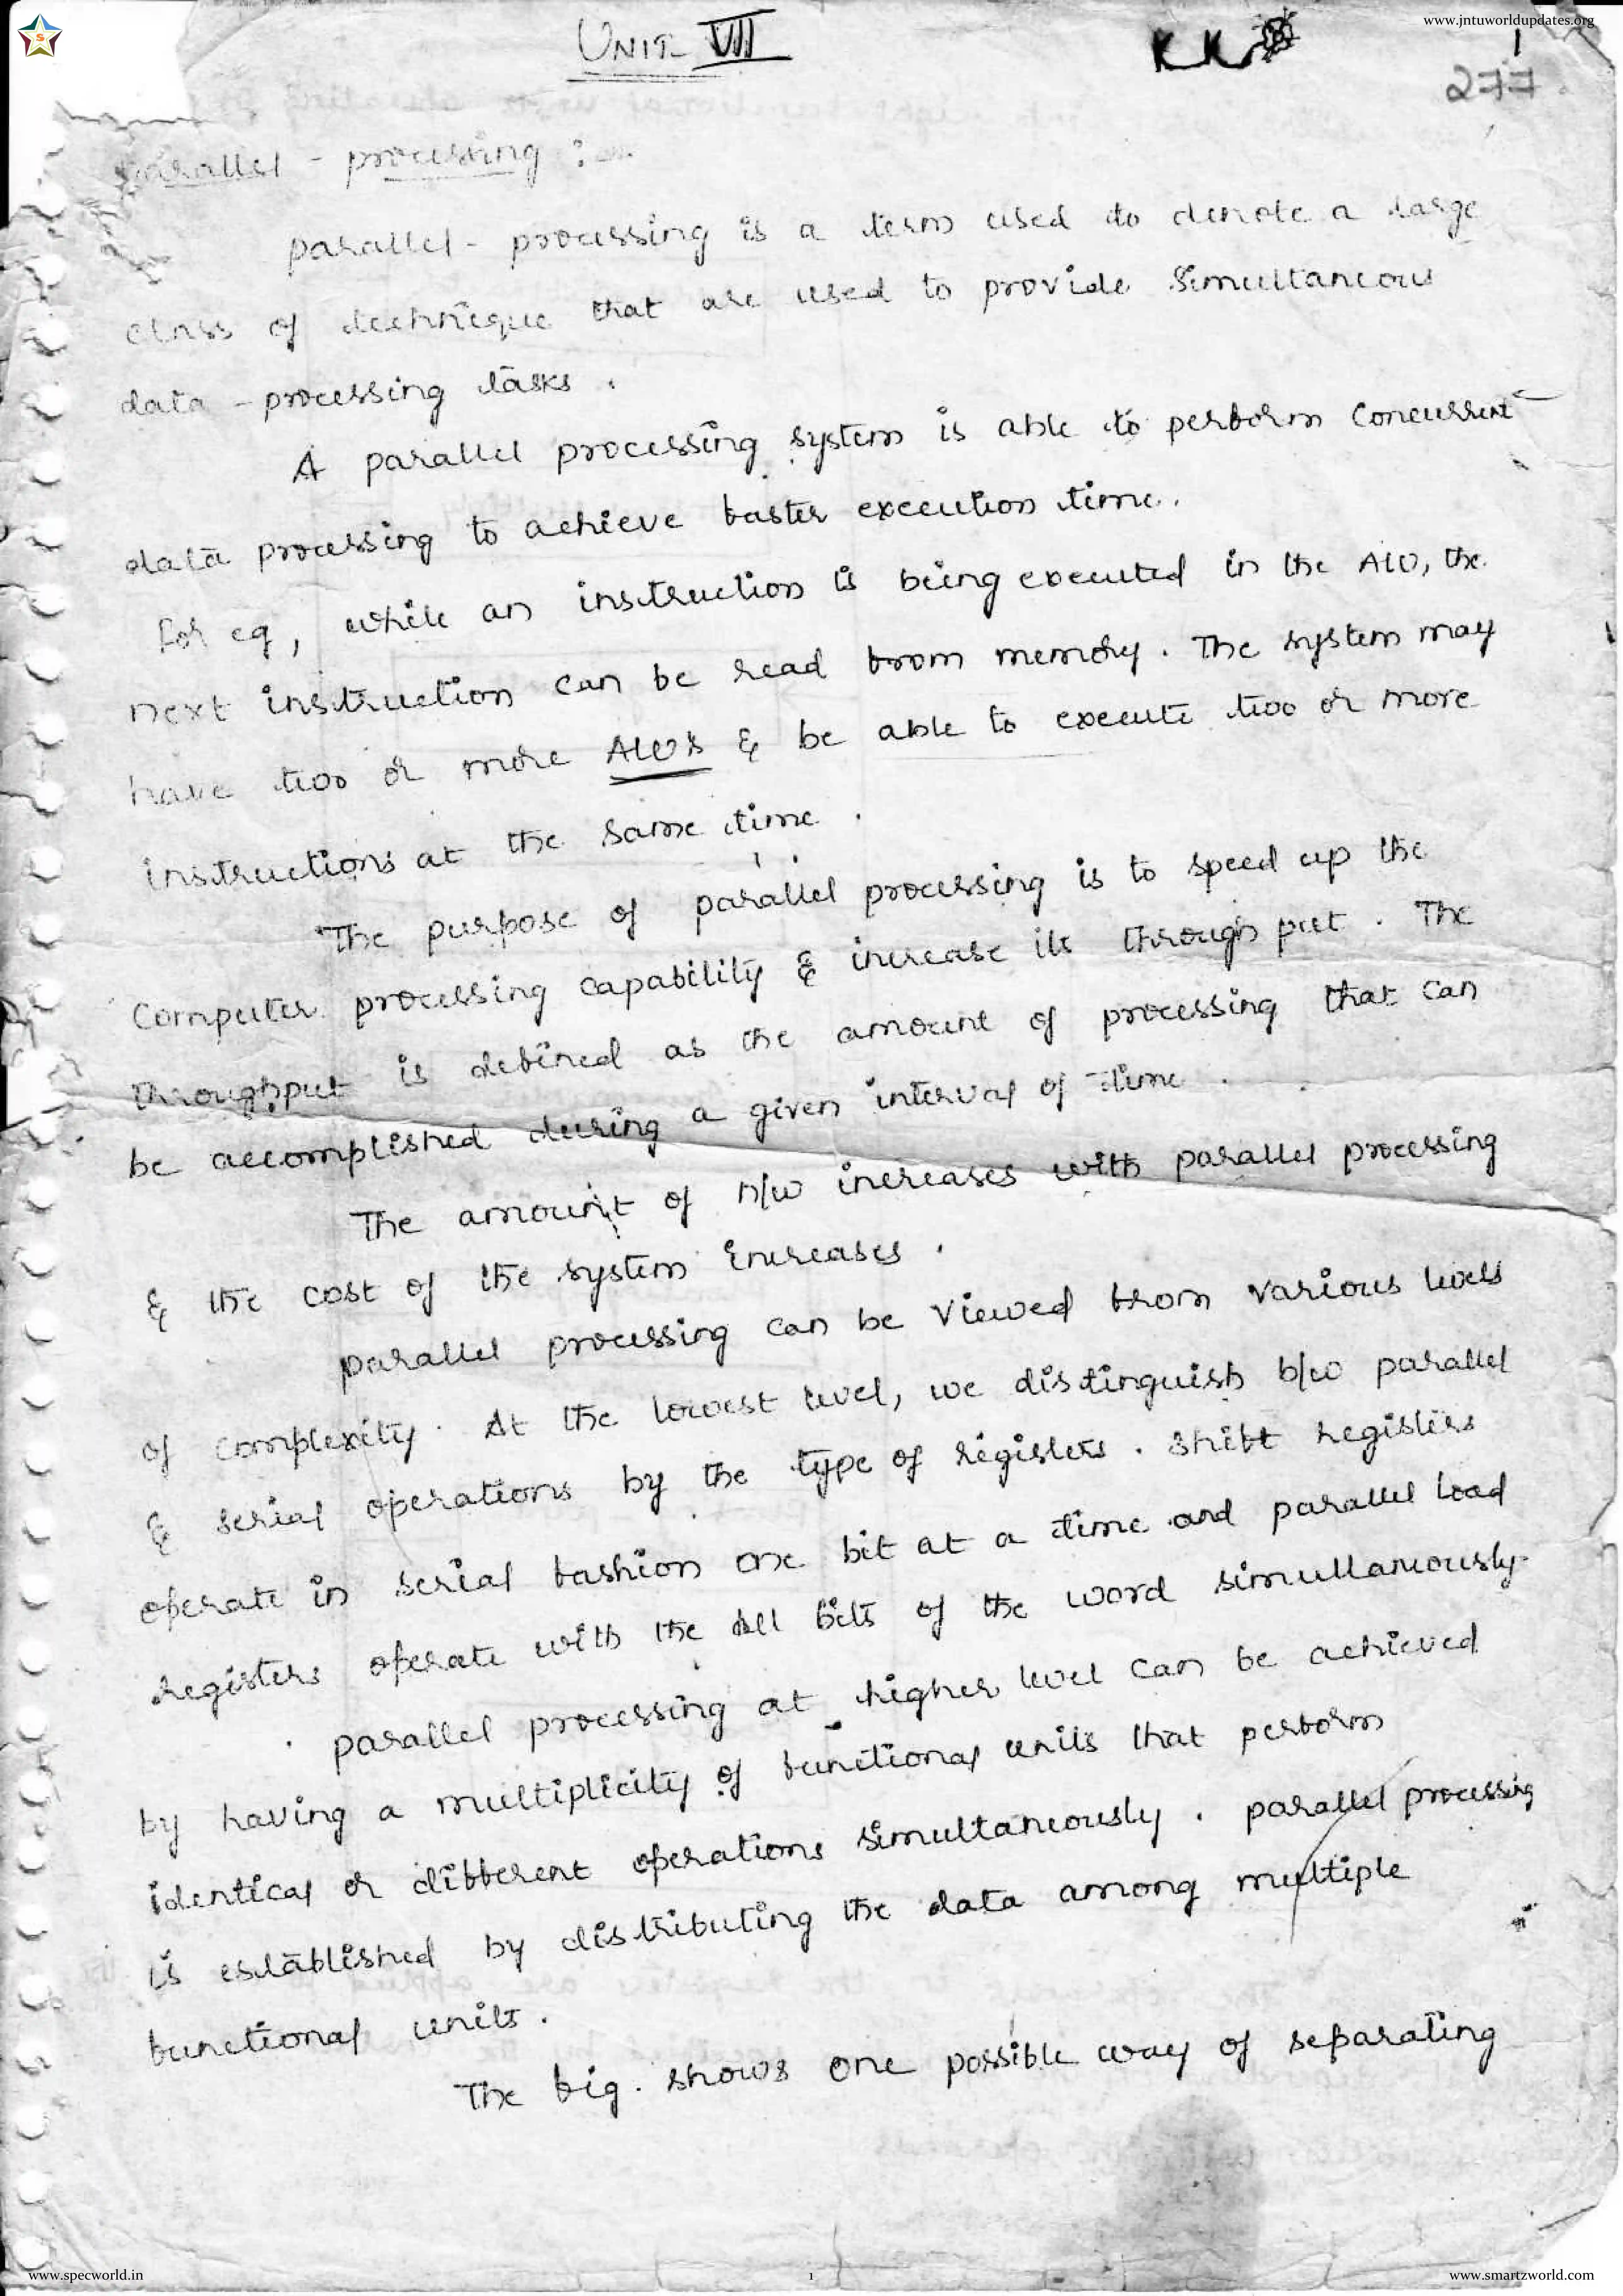 www.jntuworldupdates.org
UNIT VII
KK
1
277
parallel - processing :-
parallel - processing is a term used to denote a large
class of technique that are used to provide simultaneous
data - processing tasks .
A parallel processing system is able to perform concurrent
data processing to achieve faster execution time .
for eg , while an instruction is being executed in the ALU, the
next instruction can be read from memory . The system may
have two or more ALU's & be able to execute two or more
instructions at the same time .
The purpose of parallel processing is to speed up the
computer processing capability & increase its through put . The
throughput is defined as the amount of processing that can
be accomplished during a given interval of time .
The amount of h/w increases with parallel processing
& the cost of the system increases .
parallel processing can be viewed from various levels
of complexity . At the lowest level, we distinguish b/w parallel
& serial operations by the type of registers . shift registers
operate in serial fashion one bit at a time and parallel load
registers operate with the all bits of the word simultaneously.
parallel processing at higher level can be achieved
by having a multiplicity of functional units that perform
identical or different operations simultaneously . parallel processing
is established by distributing the data among multiple
functional units .
The fig . shows one possible way of separating
www.specworld.in
1
www.smartzworld.com